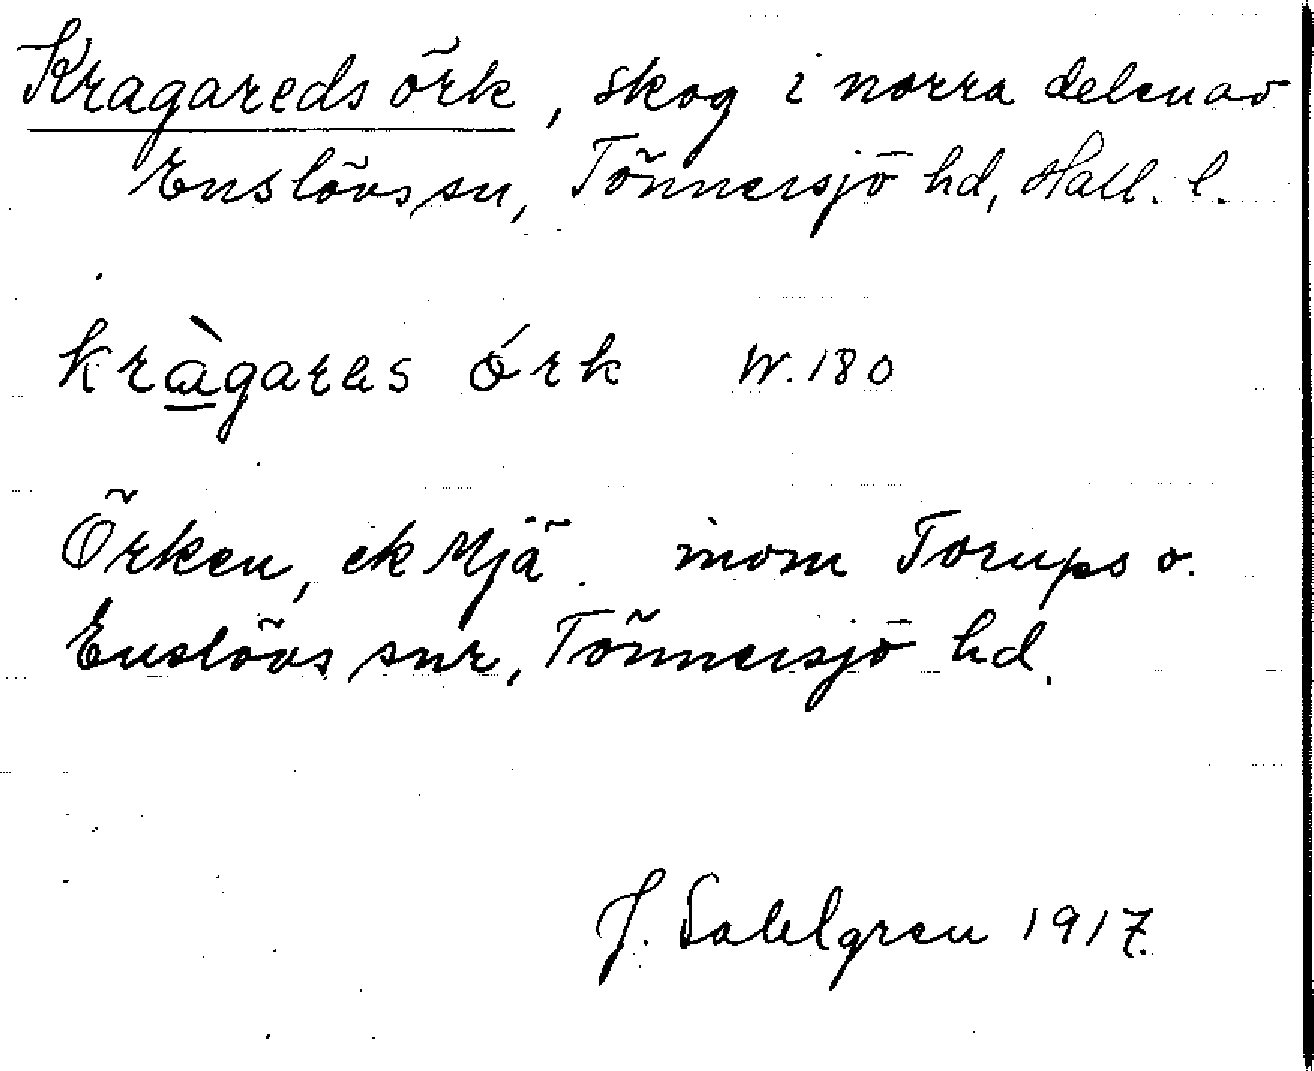 Kragareds örk, skog i norra delen av
Enslövs sn, Tönnersjö hd, Hall. l.
kràgaras órk W. 180
Örken, ek Mjä. inom Torups o.
Enslövs snr, Tönnersjö hd.
J. Sahlgren 1917.